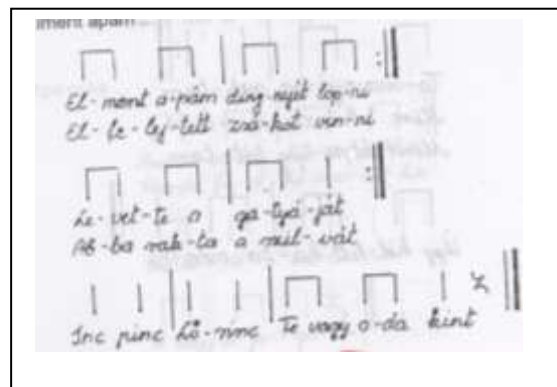 ment apám
El - ment a - pám diny - nyét lop - ni
El - fe - lej - tett zsá - kot vin - ni
Le - vet - te a ga - tyá - ját
Ab - ba rak - ta a
Inc pinc Lő - rinc Te vagy o - da kint